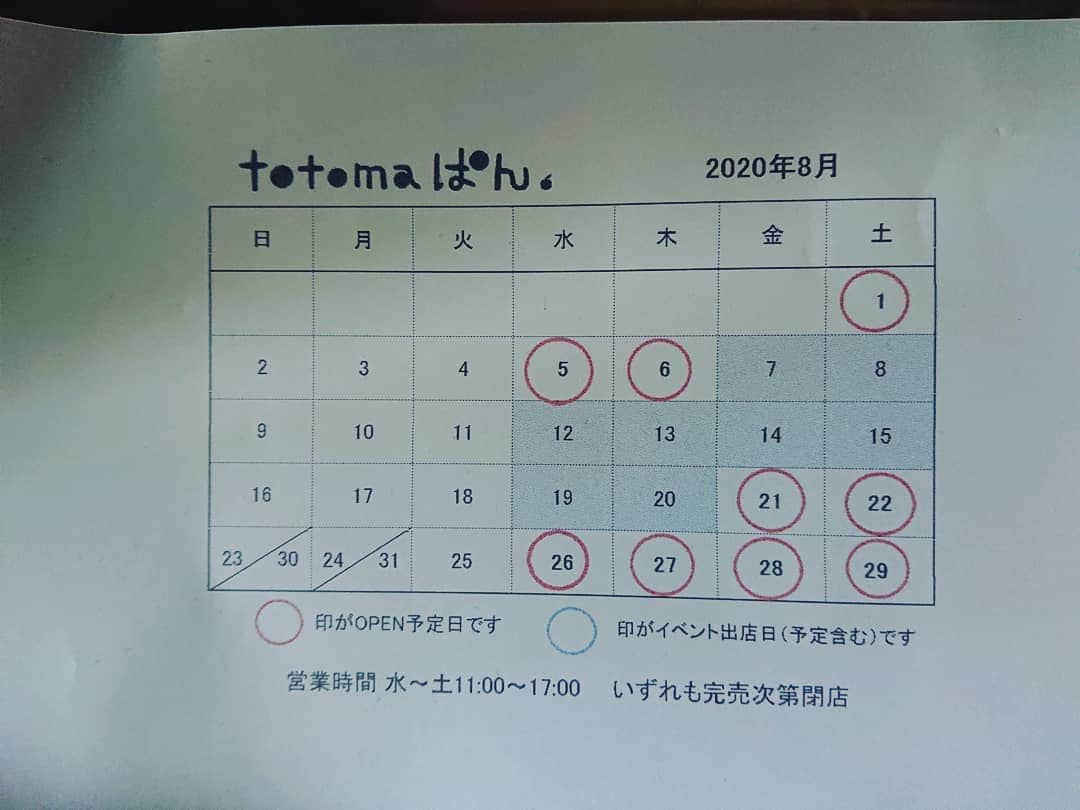 totomaぱん。 2020年8月
日 月 火 水 木 金 土
1
2 3 4 5 6 7 8
9 10 11 12 13 14 15
16 17 18 19 20 21 22
23/30 24/31 25 26 27 28 29
印がOPEN予定日です 印がイベント出店日(予定含む)です
営業時間 水～土11:00～17:00 いずれも完売次第閉店